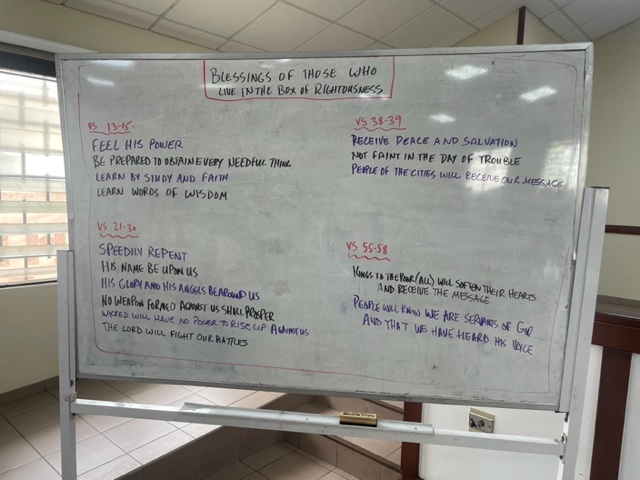 BLESSINGS OF THOSE WHO
LIVE IN THE BOX OF RIGHTOUSNESS
VS 13-15
FEEL HIS POWER
BE PREPARED TO OBTAIN EVERY NEEDFUL THING
LEARN BY STUDY AND FAITH
LEARN WORDS OF WISDOM
VS 21-30
SPEEDILY REPENT
HIS NAME BE UPON US
HIS GLORY AND HIS ANGELS BE AROUND US
NO WEAPON FORMED AGAINST US SHALL PROSPER
WICKED WILL HAVE NO POWER TO RISE UP AGAINST US
THE LORD WILL FIGHT OUR BATTLES
VS 38-39
RECEIVE PEACE AND SALVATION
NOT FAINT IN THE DAY OF TROUBLE
PEOPLE OF THE CITIES WILL RECEIVE OUR MESSAGE
VS 55-58
KINGS TO THE POOR (ALL) WILL SOFTEN THEIR HEARTS
AND RECEIVE THE MESSAGE
PEOPLE WILL KNOW WE ARE SERVANTS OF GOD
AND THAT WE HAVE HEARD HIS VOICE